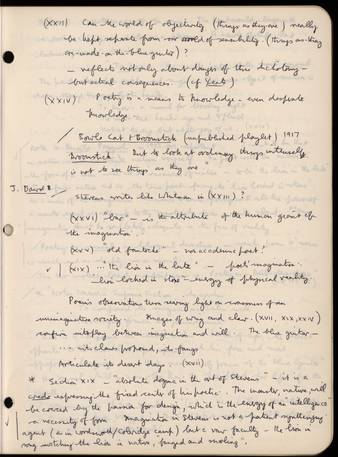 (XXII) Can the world of objectivity (things as they are) really
be kept separate from our world of sensibility (things as they
are made on the blue guitar)?
— reflects not only about dangers of this dichotomy —
but actual consequences. (cf Yeats)
(XXIV) Poetry is a means to knowledge - even desperate
knowledge.
Bowls Cat & Broomstick (unpublished playlet) 1917
Broomstick But to look at ordinary things intensely
is not to see things as they are"
J. David B.
Stevens writes like Whitman in (XXIII)?
(XXVI) "claw" — is the attribute of the human giant of
the imagination.
(XXV) "old fantoche" — no academic poet!
(XIX) "The lion in the lute" — poet's imagination.
lion locked in stone - energy of physical reality
Poem's observations turn wearing light on
unimaginative society. Images of wing and claw. (XVII, XIX, XXIV)
confirm interplay between imagination and will. The blue guitar —
... its claws propound, its fangs
Articulate its desert days (XVII)
* Section XIX - "absolute dogma in the art of Stevens" — it is a
credo expressing the fixed center of his poetic. The monster, nature, will
be covered by the passion for design, which is the energy of an intelligence
- a necessity of form. Imagination in Stevens is not a patient synthesizing
agent (as in Wordsworth/Coleridge camp) but a raw faculty — the lion is
song matching the lion in nature, fanged and smoking".